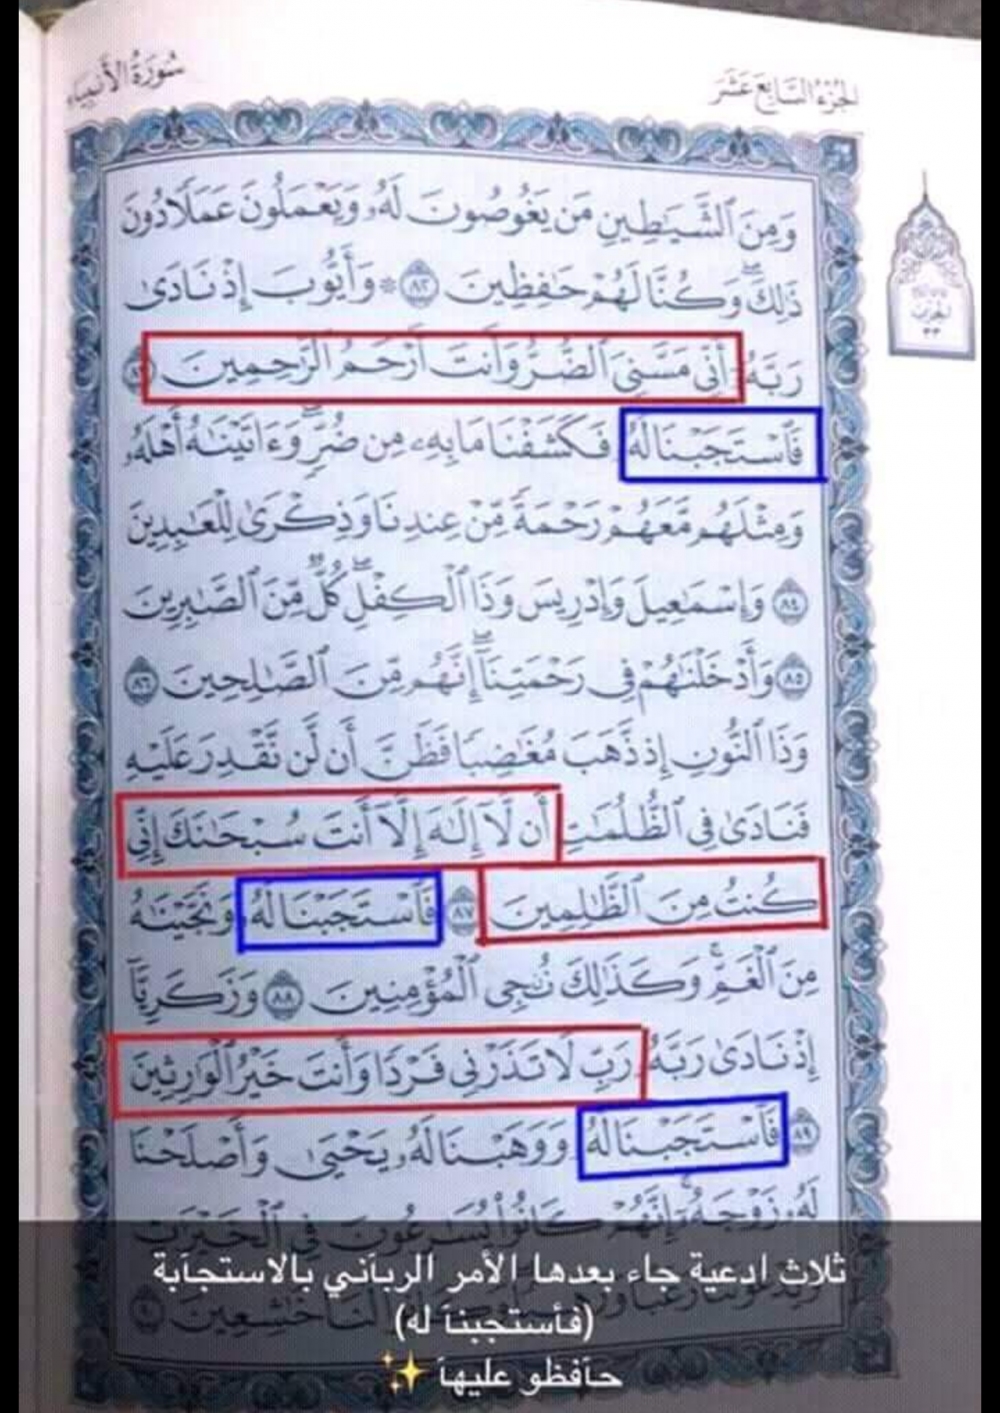 سُورَةُ الأَنبِيَاءِ
الجُزْءُ السَّابِعَ عَشَرَ
وَمِنَ ٱلشَّيَٰطِينِ مَن يَغُوصُونَ لَهُۥ وَيَعْمَلُونَ عَمَلًا دُونَ
ذَٰلِكَۖ وَكُنَّا لَهُمْ حَٰفِظِينَ ٨٢ ۞ وَأَيُّوبَ إِذْ نَادَىٰ
الحِزْبُ
٣٣
رَبَّهُۥٓ أَنِّي مَسَّنِيَ ٱلضُّرُّ وَأَنتَ أَرْحَمُ ٱلرَّٰحِمِينَ
فَٱسْتَجَبْنَا لَهُۥ فَكَشَفْنَا مَا بِهِۦ مِن ضُرّٖۖ وَءَاتَيْنَٰهُ أَهْلَهُۥ
وَمِثْلَهُم مَّعَهُمْ رَحْمَةٗ مِّنْ عِندِنَا وَذِكْرَىٰ لِلْعَٰبِدِينَ
٨٤ وَإِسْمَٰعِيلَ وَإِدْرِيسَ وَذَا ٱلْكِفْلِۖ كُلّٞ مِّنَ ٱلصَّٰبِرِينَ
٨٥ وَأَدْخَلْنَٰهُمْ فِي رَحْمَتِنَآۖ إِنَّهُم مِّنَ ٱلصَّٰلِحِينَ ٨٦
وَذَا ٱلنُّونِ إِذ ذَّهَبَ مُغَٰضِبٗا فَظَنَّ أَن لَّن نَّقْدِرَ عَلَيْهِ
فَنَادَىٰ فِي ٱلظُّلُمَٰتِ أَن لَّآ إِلَٰهَ إِلَّآ أَنتَ سُبْحَٰنَكَ إِنِّي
كُنتُ مِنَ ٱلظَّٰلِمِينَ ٨٧ فَٱسْتَجَبْنَا لَهُۥ وَنَجَّيْنَٰهُ
مِنَ ٱلْغَمِّۚ وَكَذَٰلِكَ نُۨجِي ٱلْمُؤْمِنِينَ ٨٨ وَزَكَرِيَّآ
إِذْ نَادَىٰ رَبَّهُۥ رَبِّ لَا تَذَرْنِي فَرْدٗا وَأَنتَ خَيْرُ ٱلْوَٰرِثِينَ
٨٩ فَٱسْتَجَبْنَا لَهُۥ وَوَهَبْنَا لَهُۥ يَحْيَىٰ وَأَصْلَحْنَا
لَهُۥ زَوْجَهُۥٓۚ إِنَّهُمْ كَانُواْ يُسَٰرِعُونَ فِي ٱلْخَيْرَٰتِ
ثلاث ادعية جاء بعدها الأمر الربآني بالاستجآبة
(فأستجبنآ له)
حآفظو عليهآ ✨